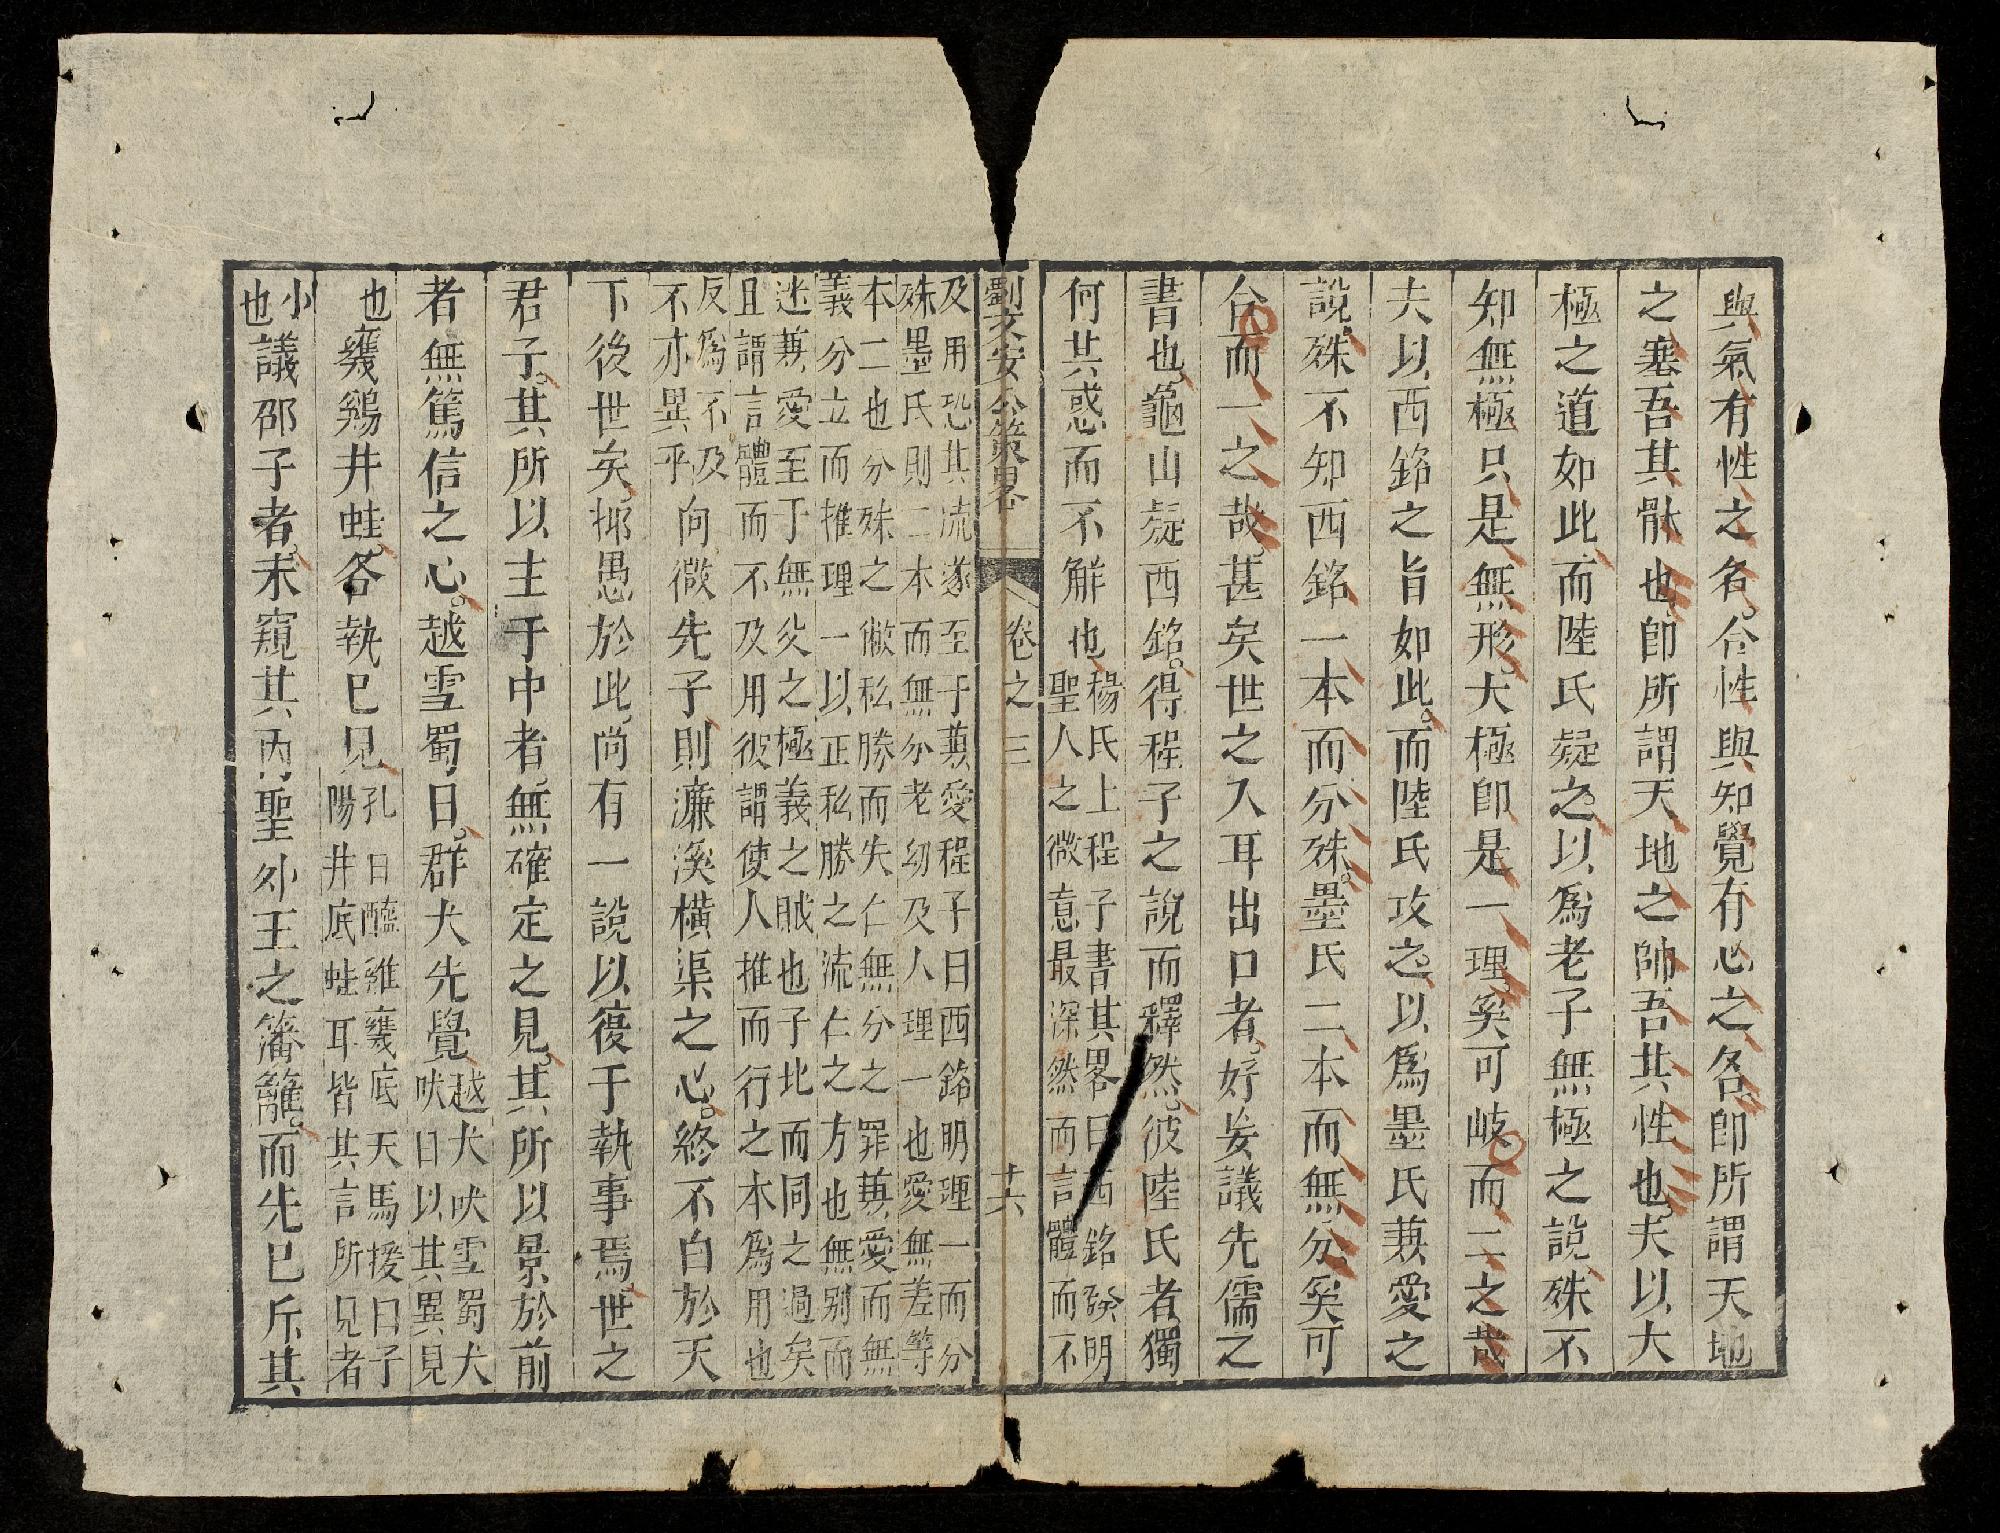 與氣有性之名合性與知覺有心之名卽所謂天地
之塞吾其體也卽所謂天地之帥吾其性也夫以太
極之道如此而陸氏疑之以爲老子無極之說殊不
知無極只是無形太極卽是一理奚可岐而二之哉
夫以西銘之旨如此而陸氏攻之以爲墨氏兼愛之
說殊不知西銘一本而分殊墨氏二本而無分奚可
合而一之哉甚矣世之入耳出口者好妄議先儒之
書也龜山疑西銘得程子之說而釋然彼陸氏者獨
何其惑而不解也
楊氏上程子書其畧曰西銘發明
聖人之微意最深然而言體而不
劉文安公策畧
卷之三
十六
及用恐其流遂至于兼愛程子曰西銘明理一而分
殊墨氏則二本而無分老幼及人理一也愛無差等
本二也分殊之敝私勝而失仁無分之罪兼愛而無
義分立而推理一以正私勝之流仁之方也無別而
迷兼愛至于無父之極義之賊也子比而同之過矣
且謂言體而不及用彼謂使人推而行之本爲用也
反爲不及
不亦異乎
向微先子則濂溪橫渠之心終不白於天
下後世矣抑愚於此尚有一說以復于執事焉世之
君子其所以主于中者無確定之見其所以景於前
者無篤信之心越雪蜀日群犬先覺
越犬吠雪蜀犬
吠日以其異見
也
甕鷄井蛙各執已見
孔曰醯雞甕底天馬援曰子
陽井底蛙耳皆其言所見者
小
也
議邵子者未窺其內聖外王之籓籬而先已斥其